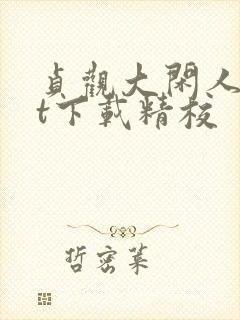 貞觀大閑人
t下載精校
哲密葉